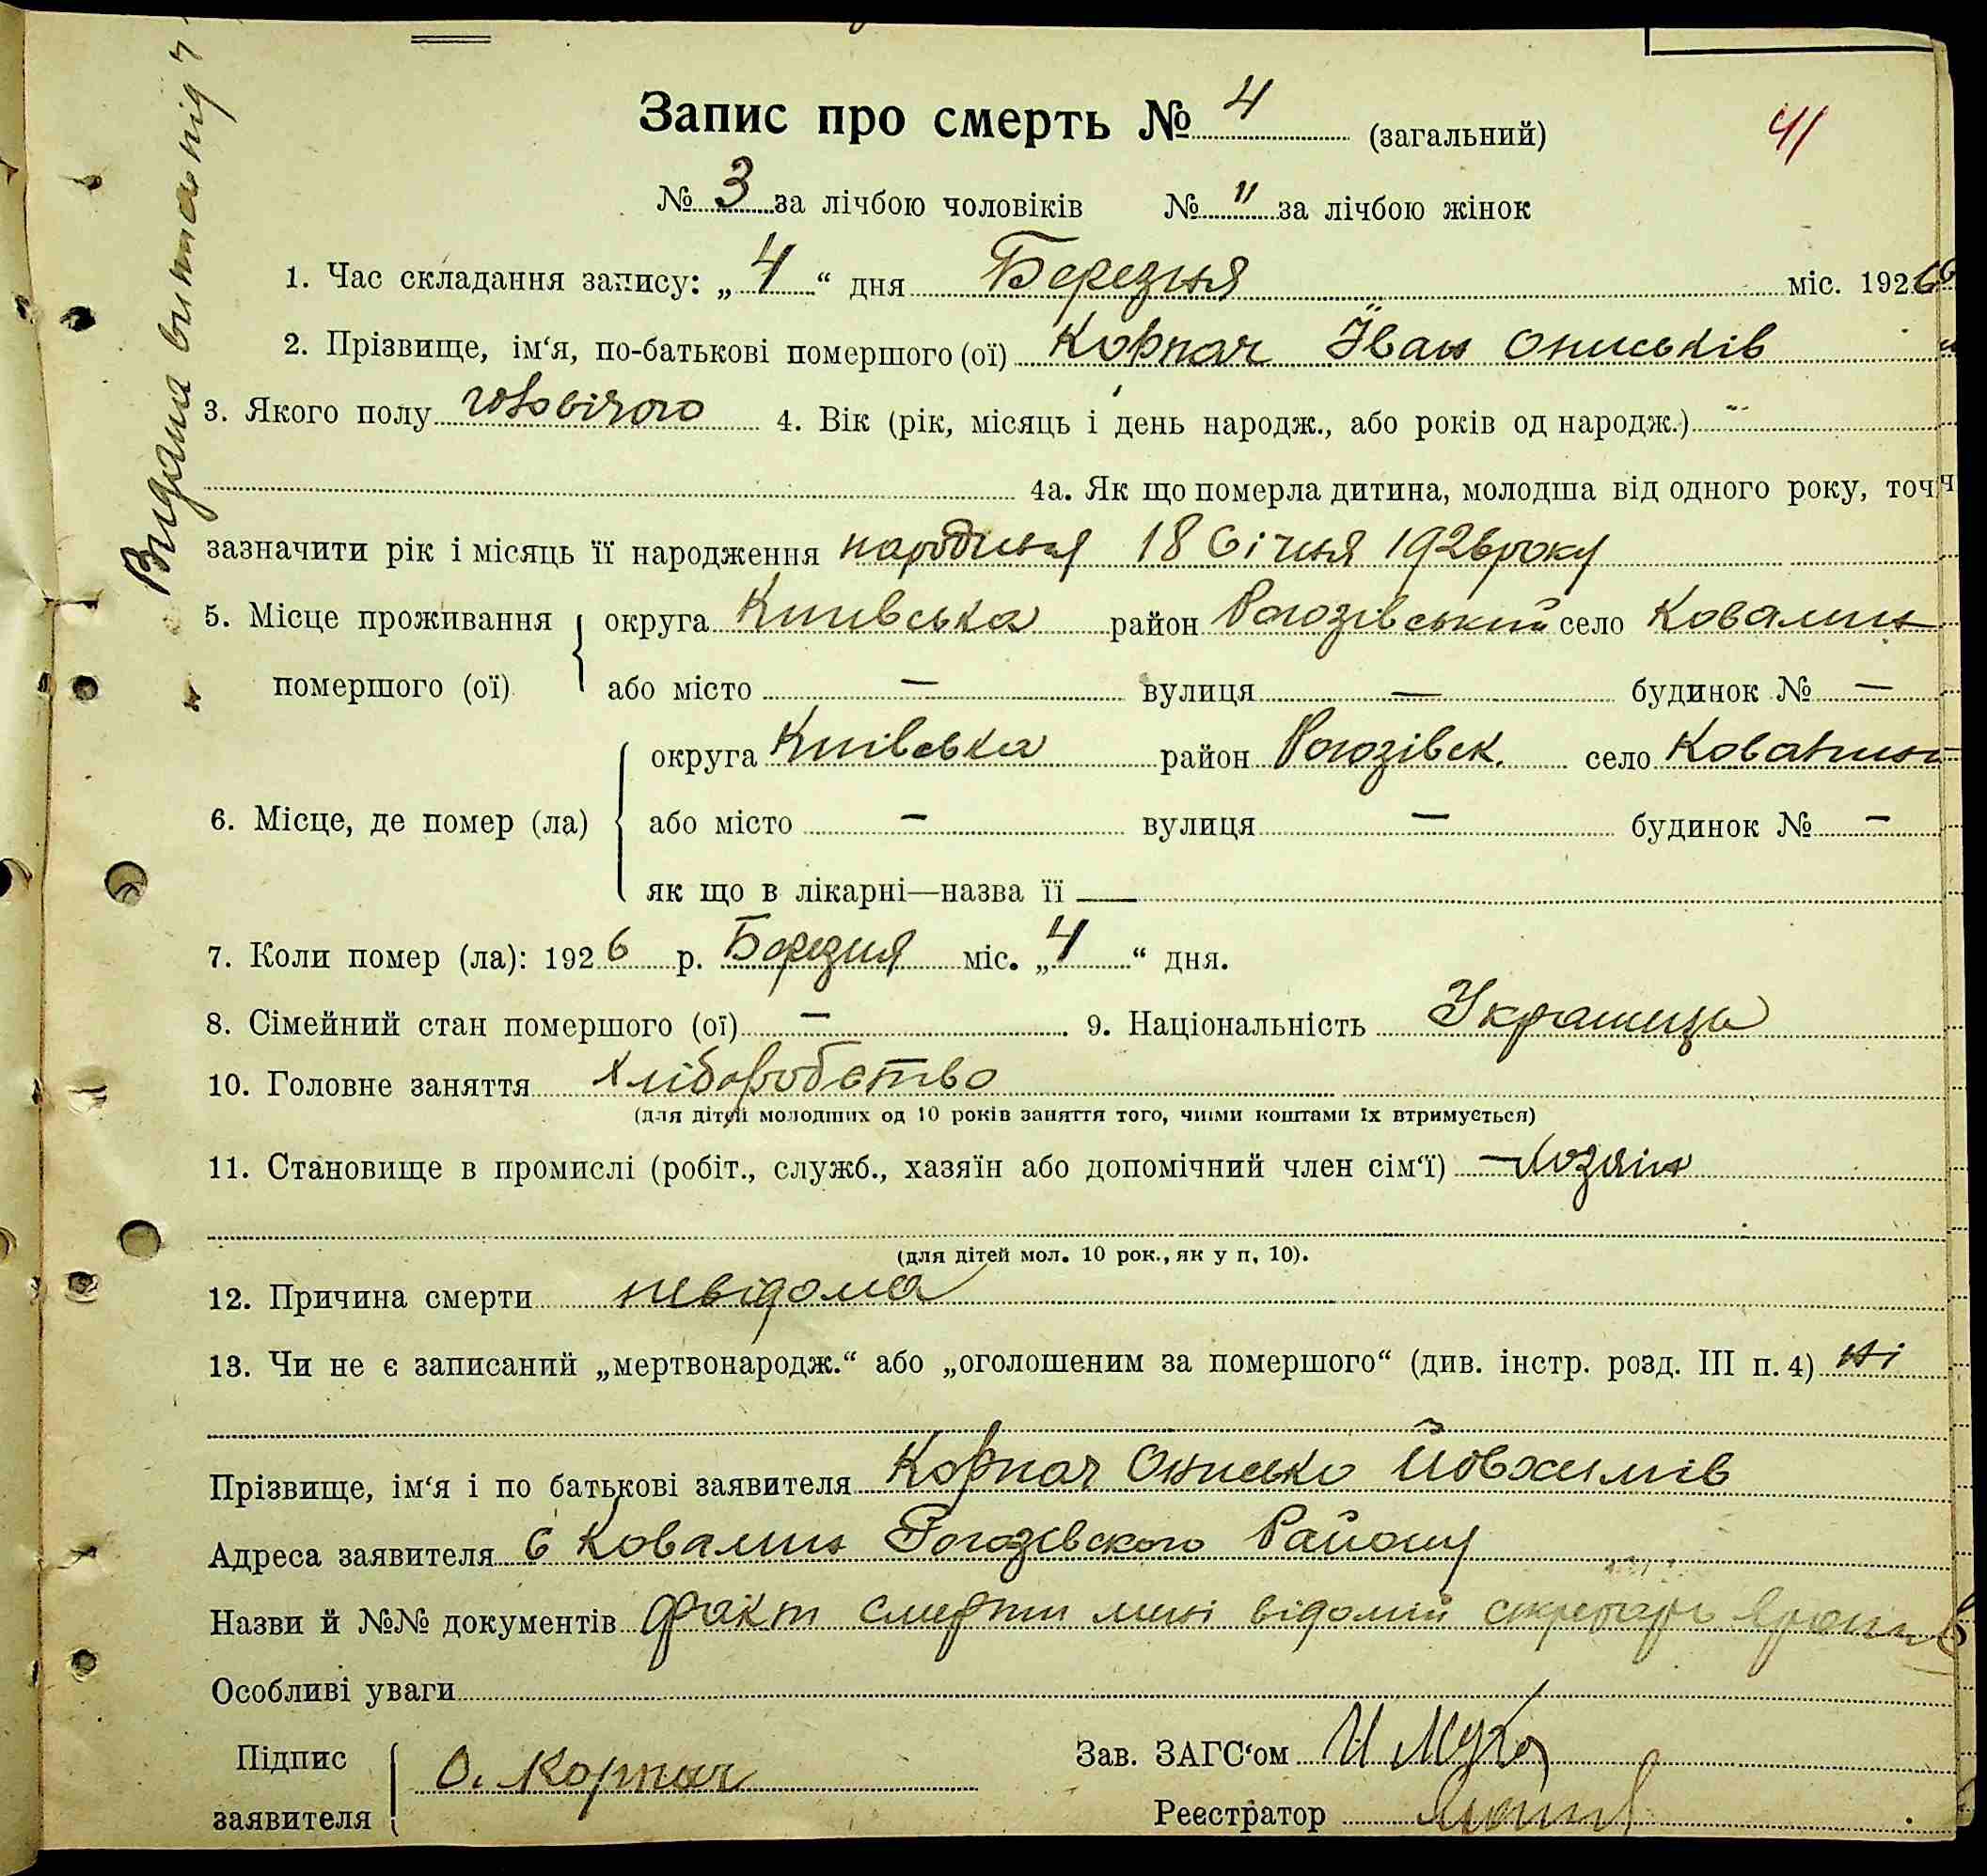 Запис про смерть № 4 (загальний)
41
№ 3 за лічбою чоловіків № " за лічбою жінок
1. Час складання запису: „4“ дня Березня міс. 1926
2. Прізвище, ім'я, по-батькові помершого (ої) Корпач Іван Ониськів
3. Якого полу чоловічого 4. Вік (рік, місяць і день народж., або років од народж.) "
4а. Як що померла дитина, молодша від одного року, точн
зазначити рік і місяць її народження народився 18 Січня 1926 року
5. Місце проживання помершого (ої) округа Київська район Рогозівський село Ковалин
або місто — вулиця — будинок № —
6. Місце, де помер (ла) округа Київська район Рогозівськ. село Ковалин
або місто — вулиця — будинок № —
як що в лікарні—назва її —
7. Коли помер (ла): 1926 р. Березня міс. „4“ дня.
8. Сімейний стан помершого (ої) — 9. Національність Українець
10. Головне заняття хліборобство
(для дітей молодших од 10 років заняття того, чиїми коштами їх втримується)
11. Становище в промислі (робіт., служб., хазяїн або допомічний член сім'ї) — хозяїн
(для дітей мол. 10 рок., як у п. 10).
12. Причина смерти невідома
13. Чи не є записаний „мертвонародж.“ або „оголошеним за помершого“ (див. інстр. розд. III п. 4) ні
Прізвище, ім'я і по батькові заявителя Корпач Онисько Йовхимів
Адреса заявителя с Ковалин Рогозівского Району
Назви й №№ документів факт смерти мині відомий секретарь
Особливі уваги
Підпис заявителя О. Корпач
Зав. ЗАГС'ом И Муха
Реєстратор
Видана витяг